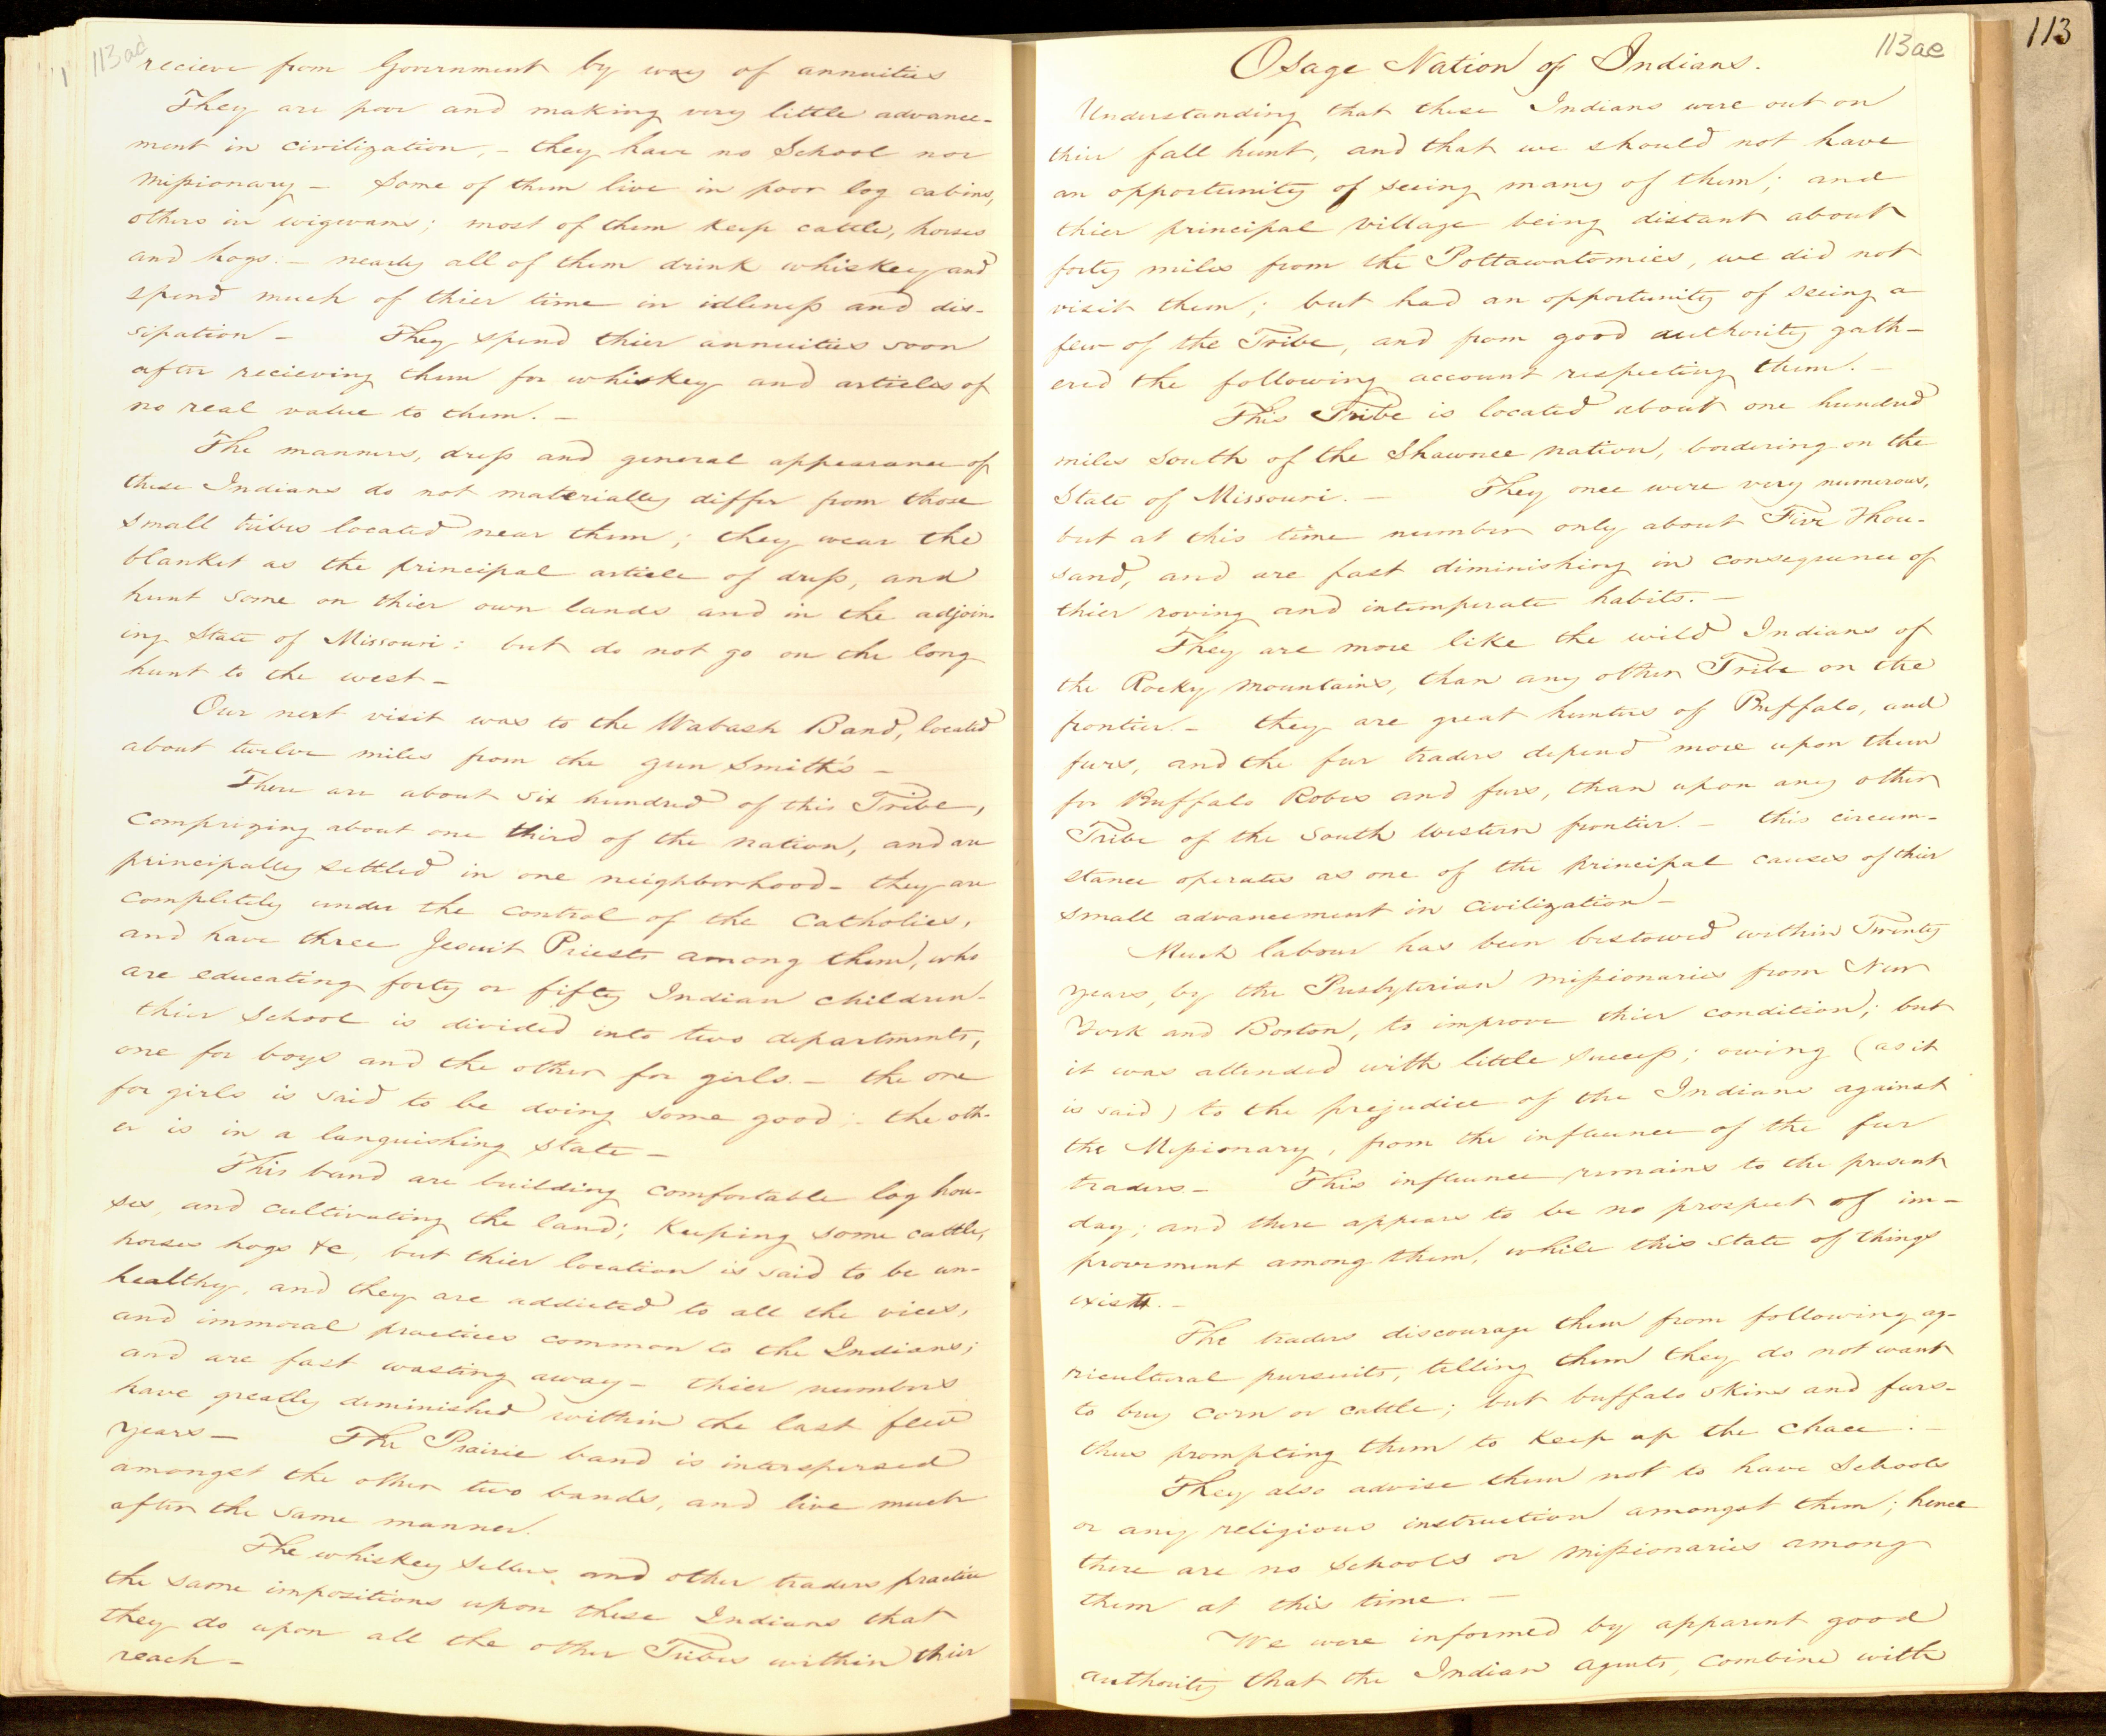 113ad
recieve from Government by way of annuities
They are poor and making very little advance-
ment in civilization, - they have no School nor
Missionary - Some of them live in poor log cabins,
others in wigwams; most of them keep cattle, horses
and hogs: - nearly all of them drink whiskey and
spend much of thier time in idleness and dis-
sipation - They spend thier annuities soon
after recieving them for whiskey and articles of
no real value to them. -
The manners, dress and general appearance of
these Indians do not materially differ from those
small tribes located near them; they wear the
blanket as the principal article of dress, and
hunt some on thier own lands and in the adjoin-
ing State of Missouri: but do not go on the long
hunt to the west -
Our next visit was to the Wabash Band, located
about twelve miles from the gun Smith's -
There are about six hundred of this Tribe,
Comprizing about one third of the nation, and are
principally settled in one neighborhood - they are
completely under the control of the Catholics,
and have three Jesuit Priests among them, who
are educating forty or fifty Indian children -
thier School is divided into two departments,
one for boys and the other for girls. - the one
for girls is said to be doing some good; - the oth-
er is in a languishing state -
This band are building comfortable log hou-
ses, and cultivating the land; keeping some cattle,
horses hogs &c, but thier location is said to be un-
healthy, and they are addicted to all the vices,
and immoral practices common to the Indians;
and are fast wasting away - thier numbers
have greatly diminished within the last few
years - The Prairie band is interspersed
amongst the other two bands, and live much
after the same manner.
The whiskey Sellers, and other traders practice
the same impositions upon these Indians that
they do upon all the other Tribes within thier
reach -
113
113ae
Osage Nation of Indians.
Understanding that these Indians were out on
thier fall hunt, and that we should not have
an opportunity of seeing many of them; and
thier principal village being distant about
forty miles from the Pottawatomies, we did not
visit them; but had an opportunity of seeing a
few of the Tribe, and from good authority gath-
ered the following account respecting them. -
This Tribe is located about one hundred
miles South of the Shawnee nation, bordering on the
State of Missouri. - They once were very numerous,
but at this time number only about Five Thou-
sand, and are fast diminishing in consequence of
thier roving and intemperate habits. -
They are more like the wild Indians of
the Rocky Mountains, than any other Tribe on the
frontier. - they are great hunters of Buffalo, and
furs, and the fur traders depend more upon them
for Buffalo Robes and furs, than upon any other
Tribe of the South Western frontier. - this circum-
stance operates as one of the principal causes of thier
small advancement in civilization -
Much labour has been bestowed within Twenty
years, by the Presbyterian missionaries from New
York and Boston, to improve thier condition; but
it was attended with little success; owing (as it
is said) to the prejudice of the Indians against
the Missionary, from the influence of the fur
traders - This influence remains to the present
day; and there appears to be no prospect of im-
provement among them, while this state of things
exists. -
The traders discourage them from following ag-
ricultural pursuits, telling them they do not want
to buy corn or cattle; but buffalo skins and furs -
thus prompting them to keep up the chace. -
They also advise them not to have Schools
or any religious instruction amongst them; hence
there are no schools or missionaries among
them at this time. -
We were informed by apparent good
authority that the Indian agents, combine with